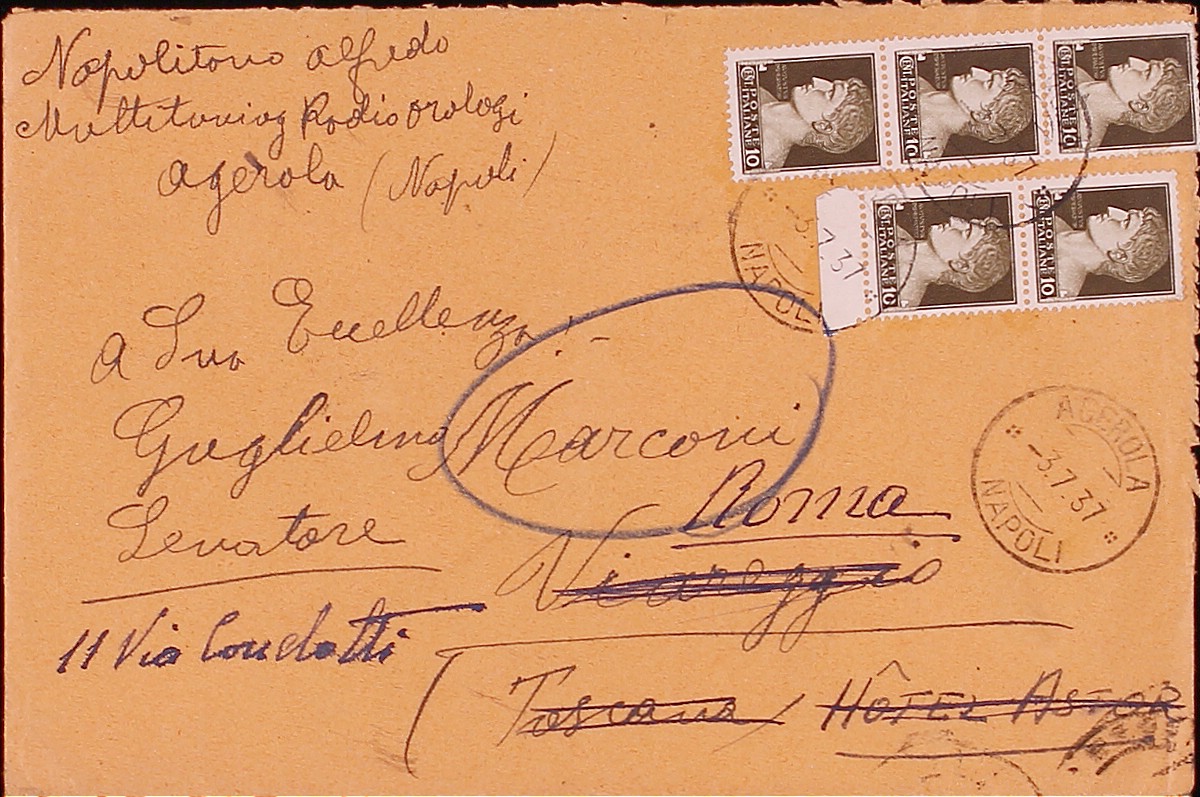 Napolitano Alfredo
Multituning Radiorologi
Agerola (Napoli)
POSTE ITALIANE 10
POSTE ITALIANE 10
POSTE ITALIANE 10
POSTE ITALIANE 10
POSTE ITALIANE 10
NAPOLI
7.37
A Sua Eccellenza
Guglielmo Marconi
Senatore
Roma
Viareggio
AGEROLA
-3.7.37
NAPOLI
11 Via Condotti
(Toscana) HÔTEL ASTOR